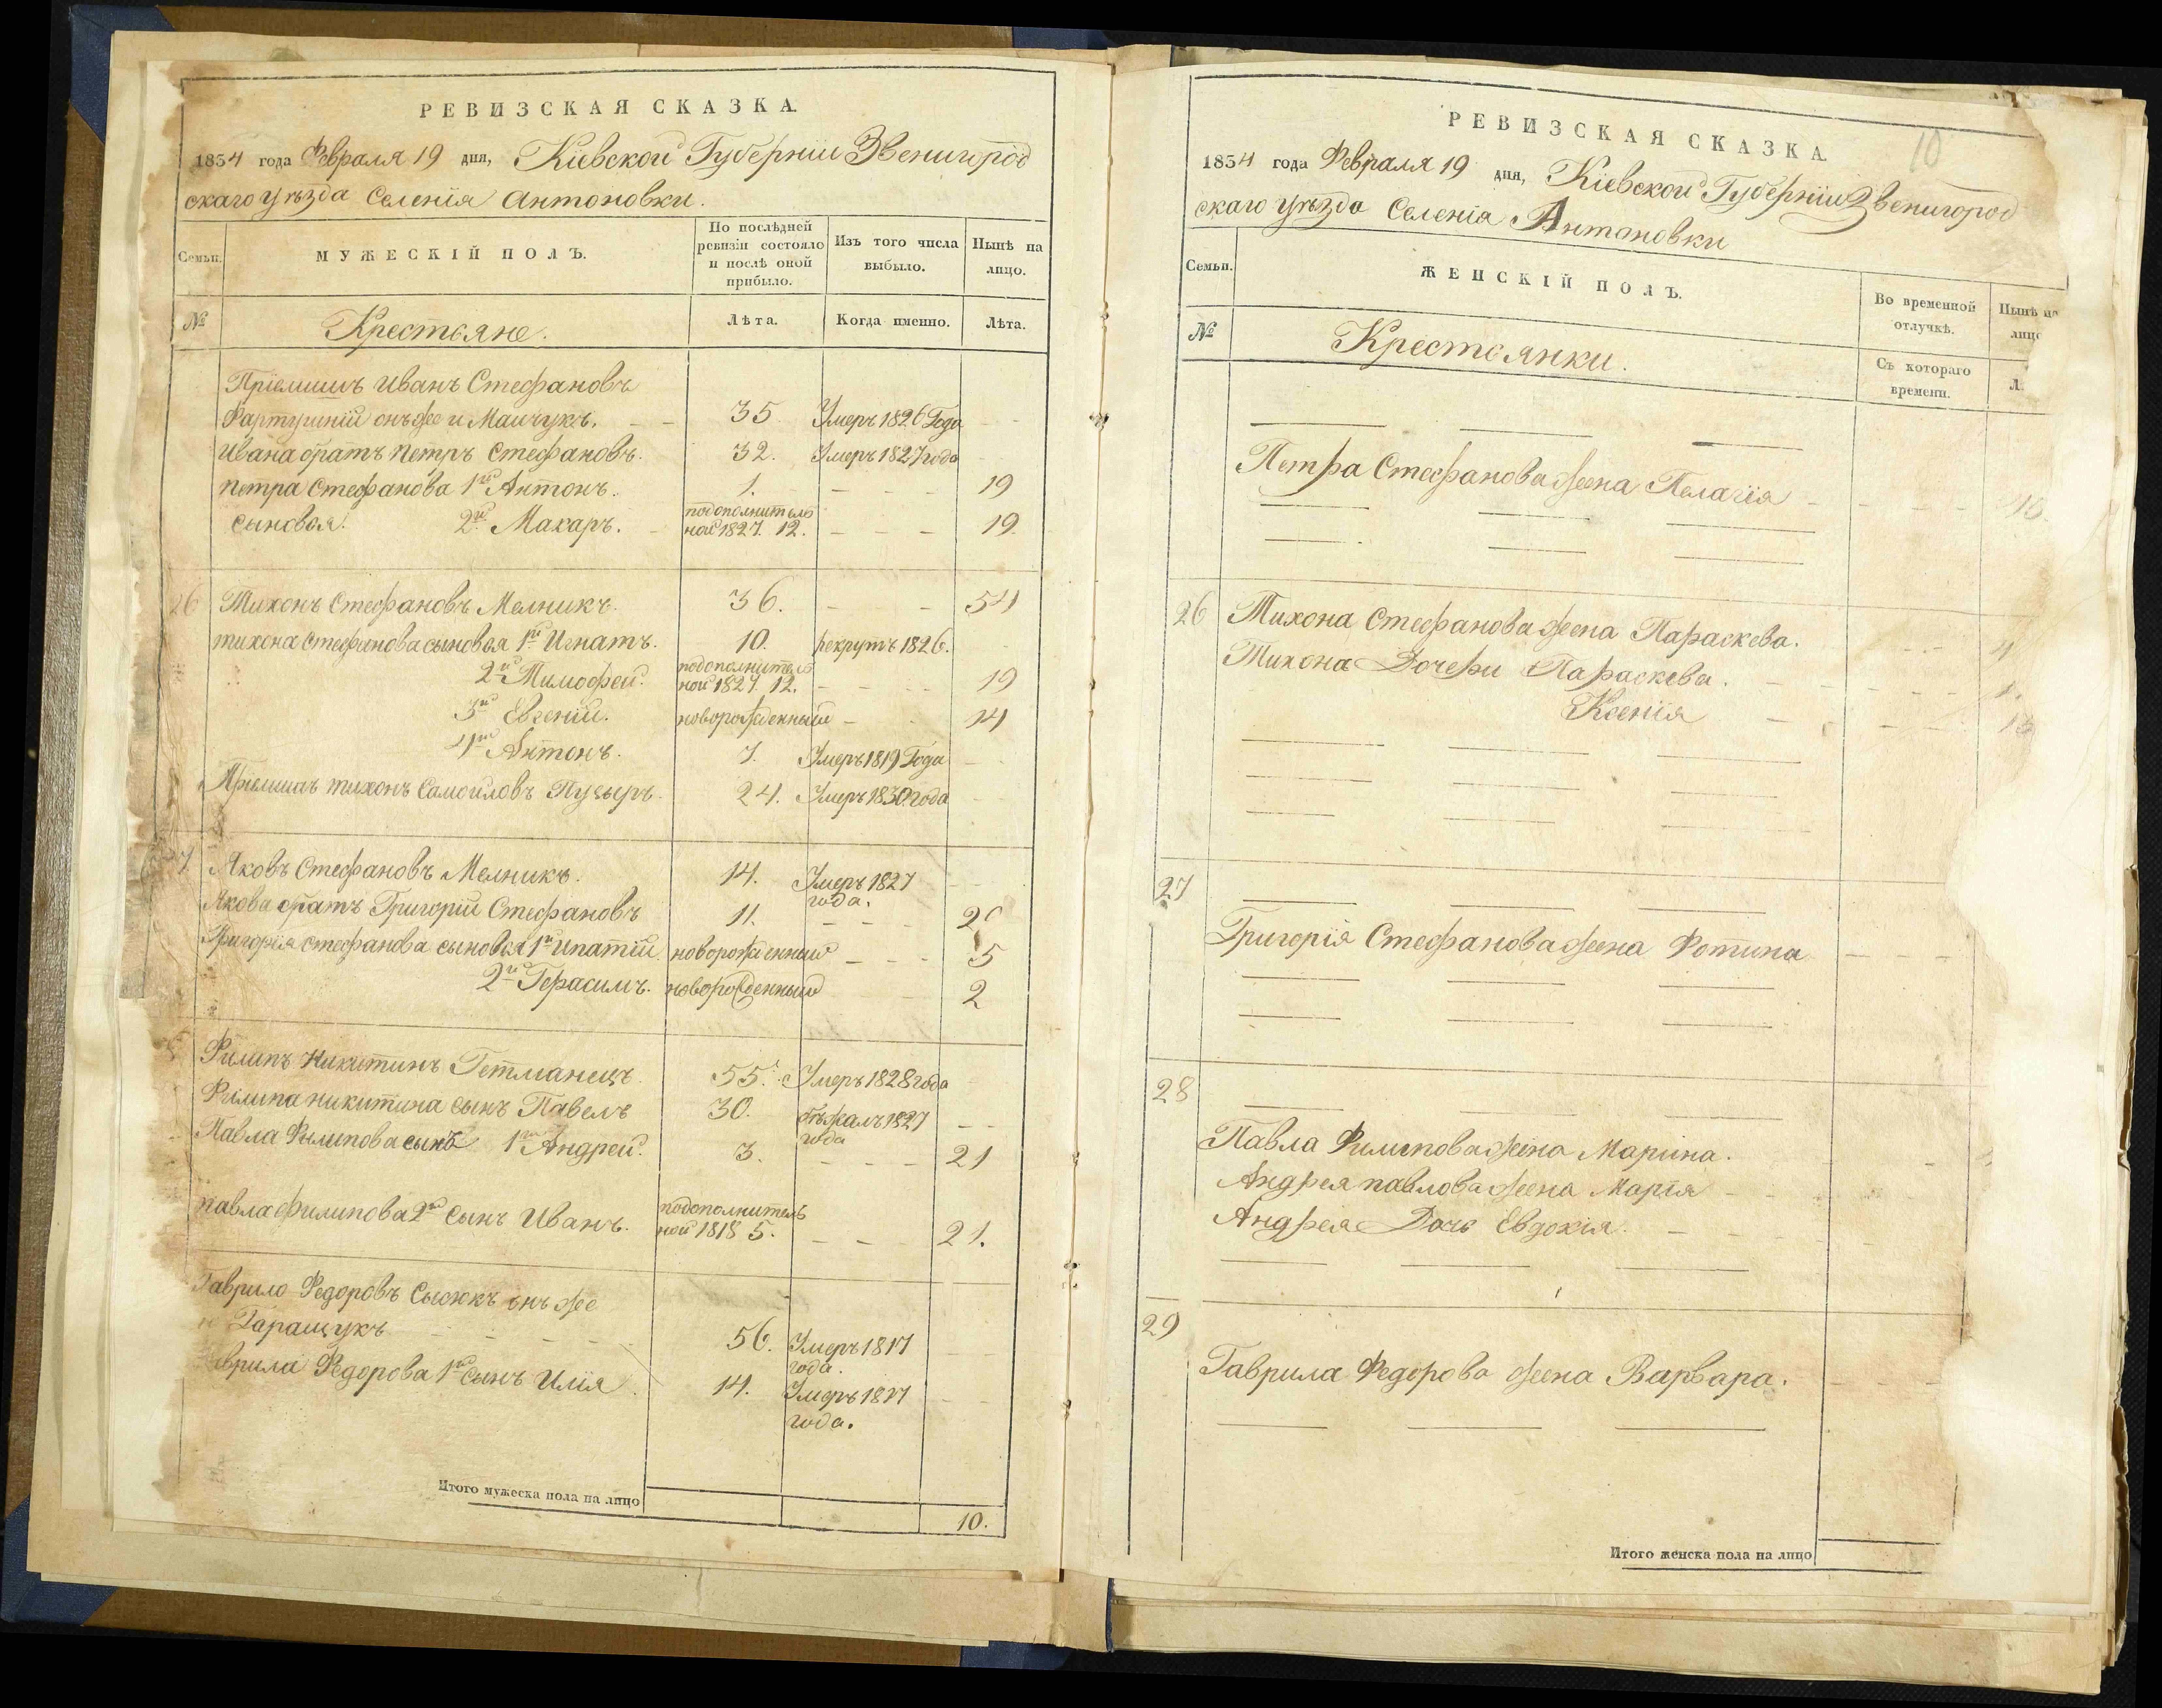 РЕВИЗСКАЯ СКАЗКА.
1834 года Февраля 19 дня, Кіевской Губерніи Звенигород
скаго уѣзда Селенія Антоновки.
Семьи.
МУЖЕСКІЙ ПОЛЪ.
По послѣдней ревизіи состояло и послѣ оной прибыло.
Изъ того числа выбыло.
Нынѣ на лицо.
№
Крестьяне.
Лѣта.
Когда именно.
Лѣта.
Пріемышъ Иванъ Стефановъ
онъ же и 35 Умеръ 1826 Года
Ивана братъ Петръ Стефановъ. 32. Умеръ 1827 года
Петра Стефанова 1й Антонъ. 1. 19
сыновья. 2й Макаръ. подополнитель
ной 1827. 12. 19.
26 Тихонъ Стефановъ Мелникъ. 36. 54
тихона стефанова сыновья 1й Игнатъ. 10. рекрутъ 1826.
2й Тимофей. подополнитель
ной 1827. 12. 19
3й Евгений. новорожденный 14
4й Антонъ. 7. Умеръ 1819 Года
Пріемышъ тихонъ Самойловъ Пузыръ. 24. Умеръ 1830 года
27 Яковъ Стефановъ Мелникъ. 14. Умеръ 1827
года.
Якова братъ Григорій Стефановъ 11.
Григорія стефанова сыновья 1й Ипатій новорожденный 5
2й Герасимъ. новорожденный 2
Филипъ Никитинъ Гетманецъ 55. Умеръ 1828 года
Филипа никитина сынъ Павелъ 30. бѣжалъ 1827
года
Павла Филипова сынъ 1й Андрей. 3. 21
павла филипова 2й сынъ Иванъ. подополнитель
ной 1818 5. 21.
Гаврило Федоровъ Сысюкъ онъ же
и Гаращукъ 56. Умеръ 1817
года.
Гаврила Федорова 1й сынъ Илія 14. Умеръ 1817
года.
Итого мужеска пола на лицо
10.
10
РЕВИЗСКАЯ СКАЗКА.
1834 года Февраля 19 дня, Кіевской Губерніи Звенигород
скаго уѣзда Селенія Антоновки
Семьи.
ЖЕНСКІЙ ПОЛЪ.
Во временной отлучкѣ.
Нынѣ на лицо
№
Крестьянки.
Съ котораго времени.
Л.
Петра Стефанова жена Пелагія
26 Тихона Стефанова жена Параскева.
Тихона Дочери Параскева.
Ксенія
27
Григорія Стефанова жена Фотина
28
Павла Филипова жена Марина.
Андрея павлова жена Марія
Андрея Дочь Евдокія.
29
Гаврила Федорова жена Варвара.
Итого женска пола на лицо